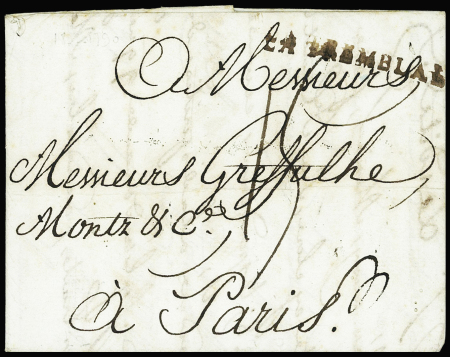 LA TREMBLAD
A Messieurs
Messieurs Greffulhe,
Montz & Cº.
à Paris.